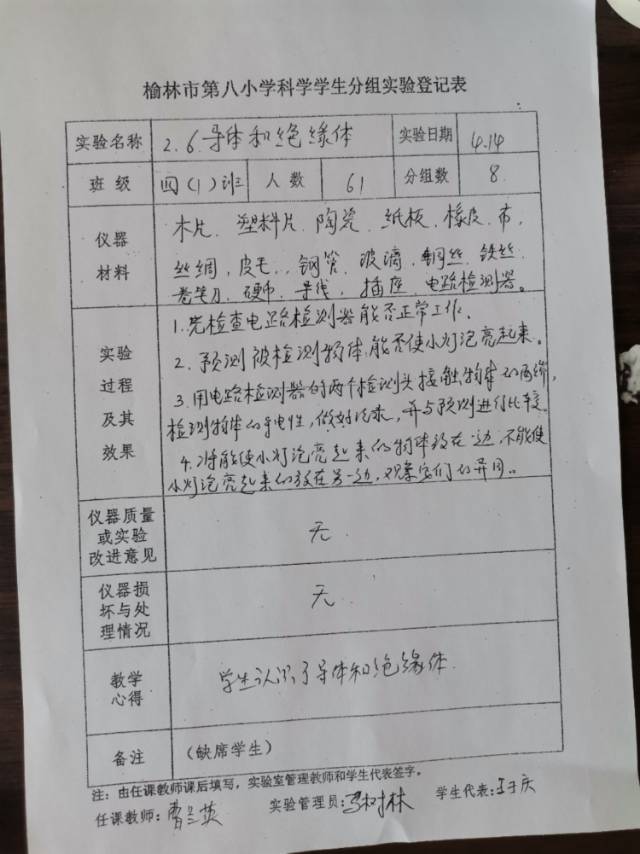 榆林市第八小学科学学生分组实验登记表
实验名称 2.6.导体和绝缘体 实验日期 4.14
班级 四(1)班 人数 61 分组数 8
仪器材料
木片、塑料片、陶瓷、纸板、橡皮、布、
丝绸、皮毛、、钢管、玻璃、铜丝、铁丝、
卷笔刀、硬币、导线、插座、电路检测器。
实验过程及其效果
1.先检查电路检测器能否正常工作。
2.预测被检测物体,能否使小灯泡亮起来。
3.用电路检测器的两个检测头接触物体的两端,
检测物体的导电性,做好记录,并与预测进行比较
4.将能使小灯泡亮起来的物体放在一边,不能使
小灯泡亮起来的放在另一边,观察它们的异同。
仪器质量
或实验
改进意见
无
仪器损
坏与处
理情况
无.
教学
心得
学生认识了导体和绝缘体.
备注 (缺席学生)
注:由任课教师课后填写,实验室管理教师和学生代表签字。
任课教师:曹兰英 实验管理员:马树林 学生代表:王于庆